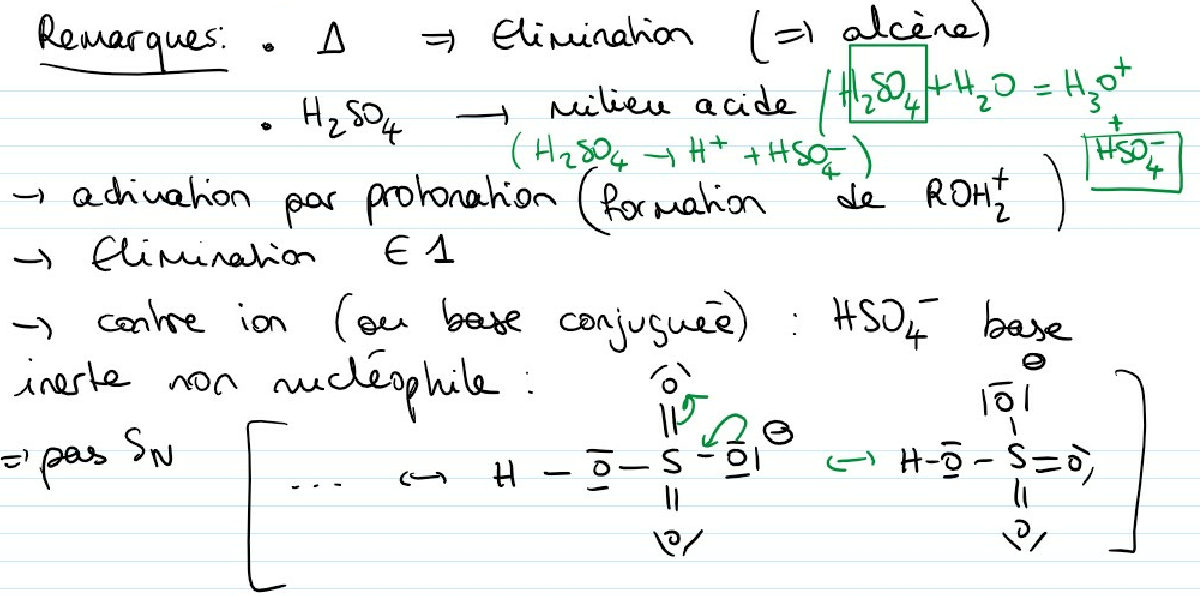 Remarques: • Δ ⇒ Elimination (⇒ alcène)
• H₂SO₄ → milieu acide (H₂SO₄ + H₂O = H₃O⁺ + HSO₄⁻
(H₂SO₄ → H⁺ + HSO₄⁻)
→ activation par protonation (formation de ROH₂⁺)
→ Elimination E1
→ contre ion (ou base conjuguée) : HSO₄⁻ base
inerte non nucléophile :
⇒ pas SN [ ... ↔ H – O – S – O ⊖ ↔ H – O – S = O ]
O O ⊖
O O